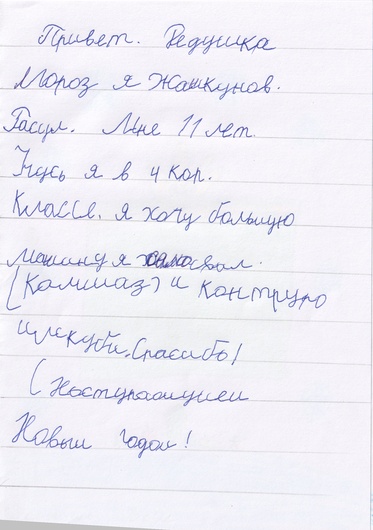 Привет. Дедушка
Мороз я Жашкунов.
Расул. Мне 11 лет.
Учусь я в 4 кор.
Классе. я хочу большую
машинд я самосвал.
(Камшаз) и контруро
Спасибо!
(Наступающием
Новым годом!